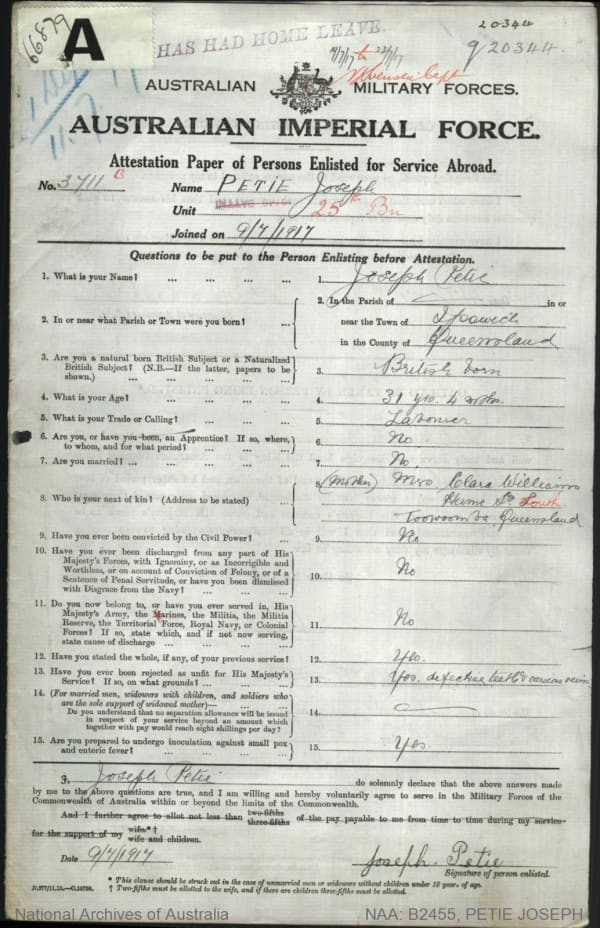 66879
A
HAS HAD HOME LEAVE.
20344
q 20344
AUSTRALIAN MILITARY FORCES.
AUSTRALIAN IMPERIAL FORCE.
Attestation Paper of Persons Enlisted for Service Abroad.
No. 3711 B Name PETIE Joseph
Unit 25th Bn
Joined on 9/7/1917
Questions to be put to the Person Enlisting before Attestation.
1. What is your Name? ... ... ... ... 1. Joseph Petie
2. In or near what Parish or Town were you born? ... 2. In the Parish of in or
near the Town of Ipswich
in the County of Queensland
3. Are you a natural born British Subject or a Naturalized
British Subject? (N.B.—If the latter, papers to be
shown.) ... ... ... ... 3. British born
4. What is your Age? ... ... ... ... 4. 31 yrs. 4 mths.
5. What is your Trade or Calling? ... ... ... 5. Labourer
6. Are you, or have you been, an Apprentice? If so, where,
to whom, and for what period? ... ... ... 6. No
7. Are you married? ... ... ... ... 7. No.
8. Who is your next of kin? (Address to be stated) ... 8. (Mother) Mrs. Clara Williams
Hume St South
Toowoomba Queensland
9. Have you ever been convicted by the Civil Power? ... 9. No
10. Have you ever been discharged from any part of His
Majesty's Forces, with Ignominy, or as Incorrigible and
Worthless, or on account of Conviction of Felony, or of a
Sentence of Penal Servitude, or have you been dismissed
with Disgrace from the Navy? ... ... ... 10. No
11. Do you now belong to, or have you ever served in, His
Majesty's Army, the Marines, the Militia, the Militia
Reserve, the Territorial Force, Royal Navy, or Colonial
Forces? If so, state which, and if not now serving,
state cause of discharge ... ... ... 11. No
12. Have you stated the whole, if any, of your previous service? 12. Yes.
13. Have you ever been rejected as unfit for His Majesty's
Service? If so, on what grounds? ... ... 13. Yes. defective teeth & varicose veins
14. (For married men, widowers with children, and soldiers who
are the sole support of widowed mother)—
Do you understand that no separation allowance will be issued
in respect of your service beyond an amount which
together with pay would reach eight shillings per day? 14.
15. Are you prepared to undergo inoculation against small pox
and enteric fever? ... ... ... ... 15. Yes
I, Joseph Petie do solemnly declare that the above answers made
by me to the above questions are true, and I am willing and hereby voluntarily agree to serve in the Military Forces of the
Commonwealth of Australia within or beyond the limits of the Commonwealth.
And I further agree to allot not less than two-fifths three-fifths of the pay payable to me from time to time during my service
for the support of my wife.*† wife and children.
Date 9/7/1917 Joseph Petie
Signature of person enlisted.
* This clause should be struck out in the case of unmarried men or widowers without children under 18 year of age.
D.277/11.15.—C.14759. † Two-fifths must be allotted to the wife, and if there are children three-fifths must be allotted.
National Archives of Australia NAA: B2455, PETIE JOSEPH